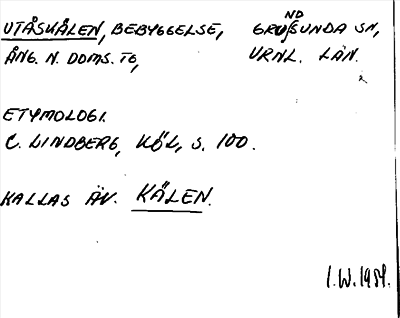 UTÅSKÄLEN, BEBYGGELSE, GRUNDSUNDA SN,
ÅNG. N. DOMS. TG, VRNL. LÄN.
ETYMOLOGI.
C. LINDBERG, KÖL, S. 100.
KALLAS ÄV. KÄLEN.
I.W. 1984.